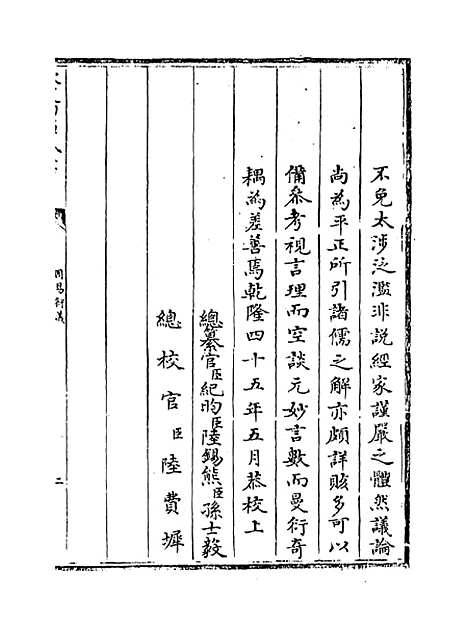 不免太涉泛濫非說經家謹嚴之體然議論
尚為平正所引諸儒之解亦頗詳賅多可以
備叅考視言理而空談元妙言數而曼衍奇
耦為差善焉乾隆四十五年五月恭校上
總纂官臣紀昀臣陸錫熊臣孫士毅
總校官臣陸費墀
周易衍義
二